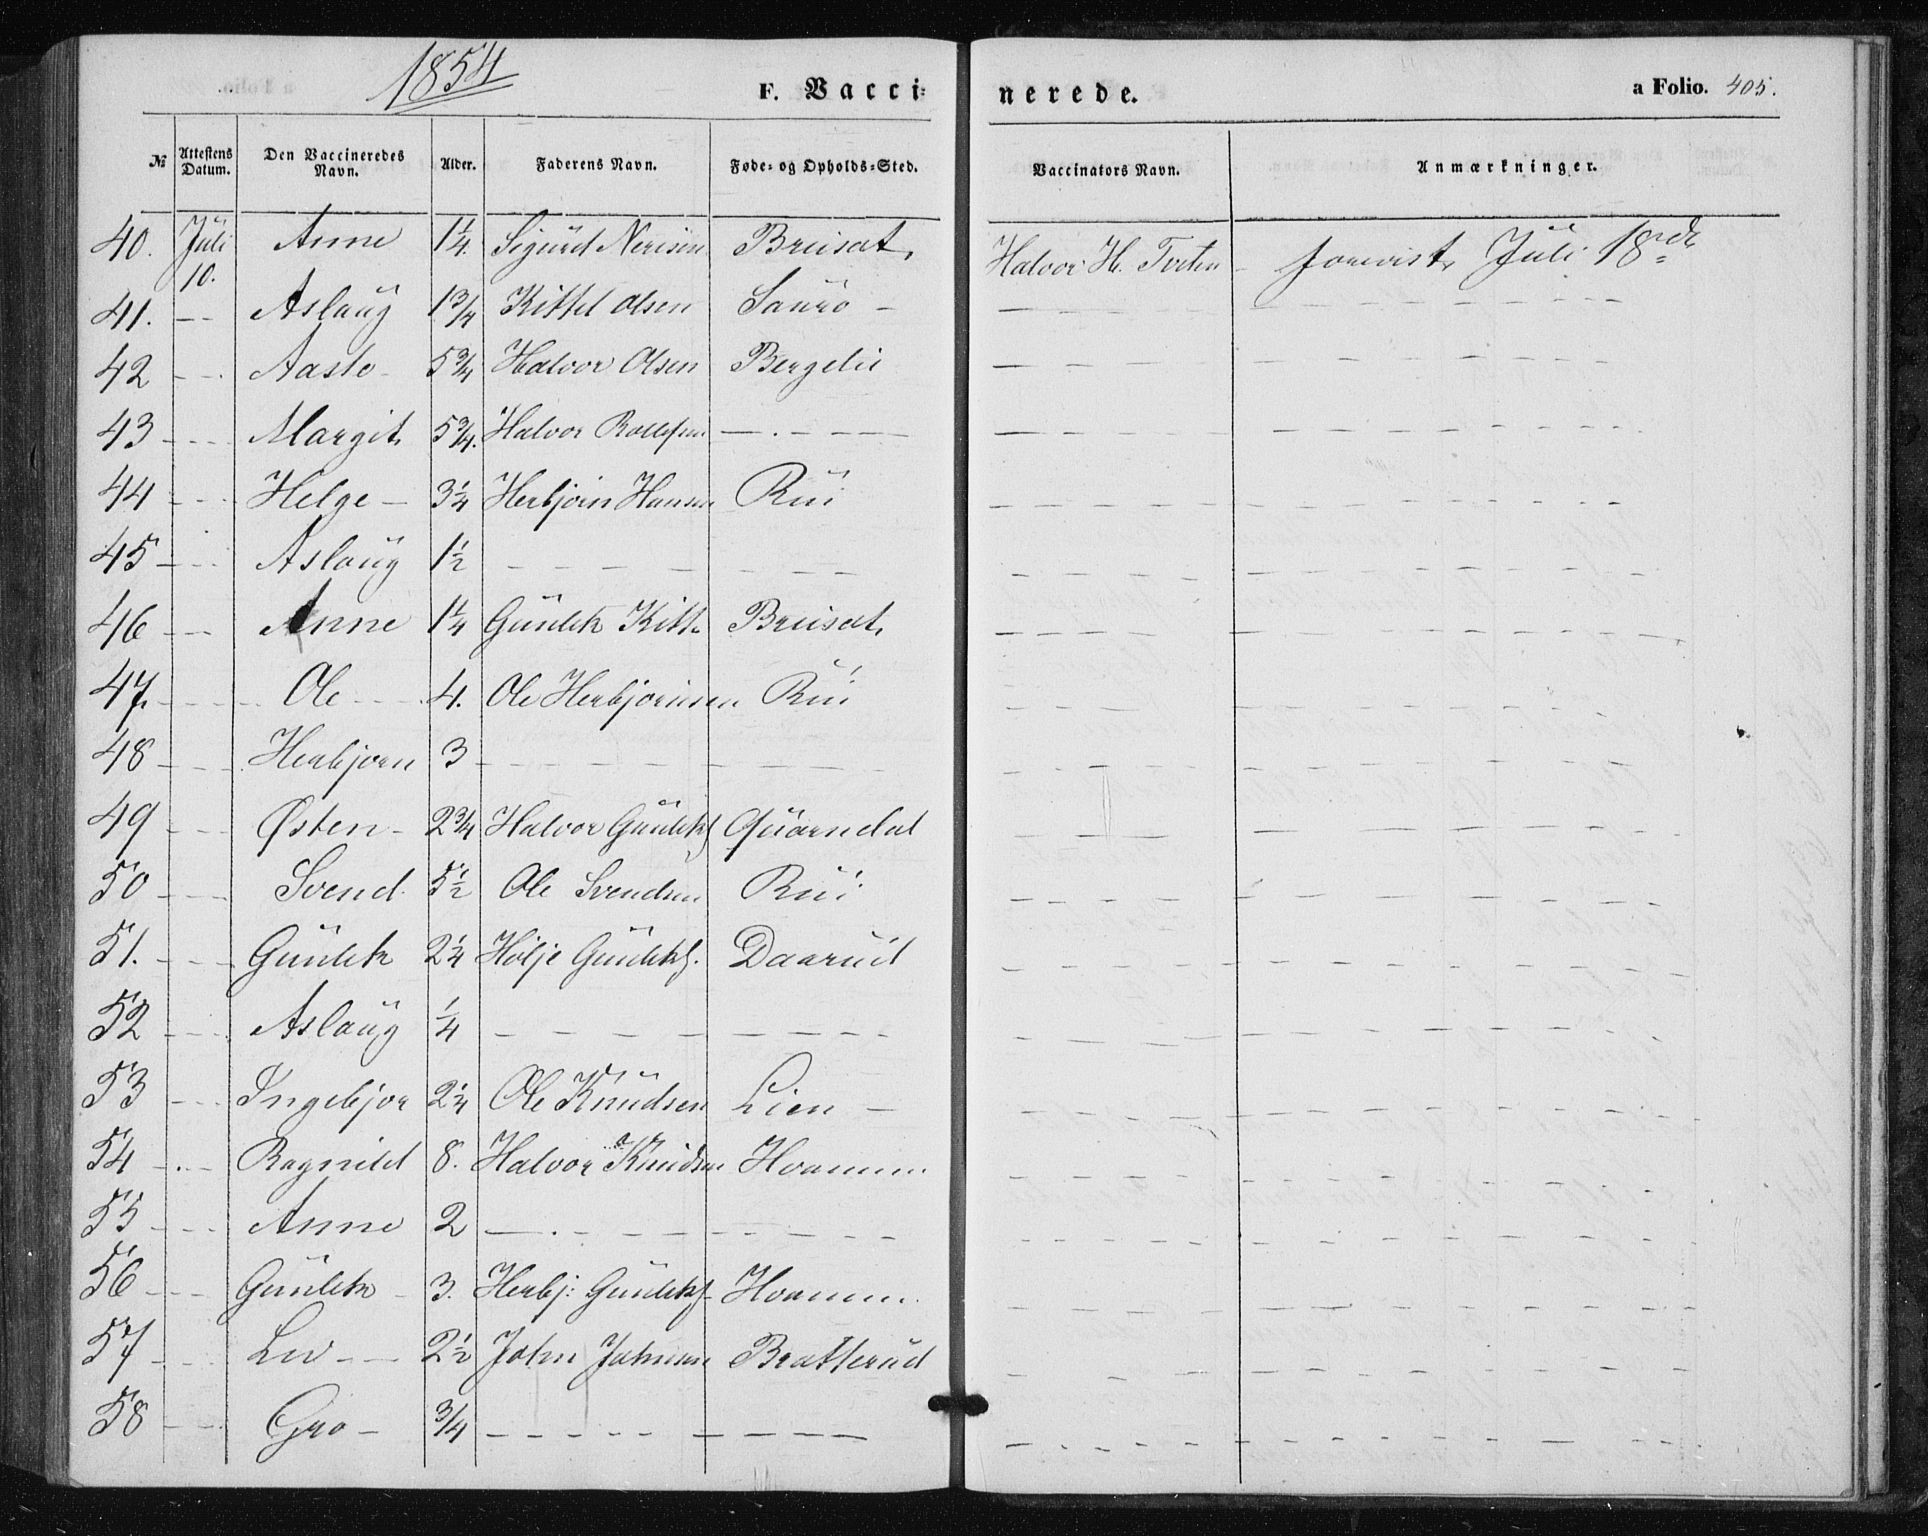 1854
F. Vacci-
nerede.
a Folio. 405.
No Attestens Datum. Den Vaccineredes Navn. Alder. Faderens Navn. Føde- og Opholds-Sted. Vaccinators Navn. Anmærkninger.
40. Juli 10. Anne 1 1/4. Sigurd Nerisen Brusat, Halvor H. Tveten - Juli 18
41. - - Aslaug 1 3/4 Kittel Olsen Sauro - - - - -
42 - - Aaste - 5 3/4 Halvor Olsen Bergelie - - - -
43 - - - Margit 5 3/4. Halvor Rollefsen - . - - - - - -
44 - - - Helge - 3 1/4 Herbjørn Hansen Rui - - - -
45 - - - Aslaug 1 1/2 - - - - - - - - - -
46 - - Anne 1 1/4 Gunlek Kitt. Brusat, - - - -
47. - - - Ole - - 4. Ole Herbjørnsen Rui - - - -
48 - - - Herbjørn 3 - - - - - - - - - -
49 - - Østen - 2 3/4 Halvor Gunleks Quarndal - - - -
50 - - - Svend. 5 1/2 Ole Svendsen Rui - - - -
51. - - - Gunlek 2 1/4 Holje Gunleks. Daarud - - - -
52 - - - Aslaug 1/4 - - - - - - - - - -
53 - - - Ingebjør 2 1/4 Ole Knudsen Lien - - - - -
54 - . - Ragnild 8. Halvor Knudsen Hvamm - - - -
55 - - - Anne 2 - . - - - - - - - -
56 - - - Gunlek - 3. Herbj: Gunleks - Hvamm. - - - -
57 - - - Liv - - 2 1/2 John Johnsen Bratterud - - - -
58 - - Gro - 3/4 - - - - - - - - - -